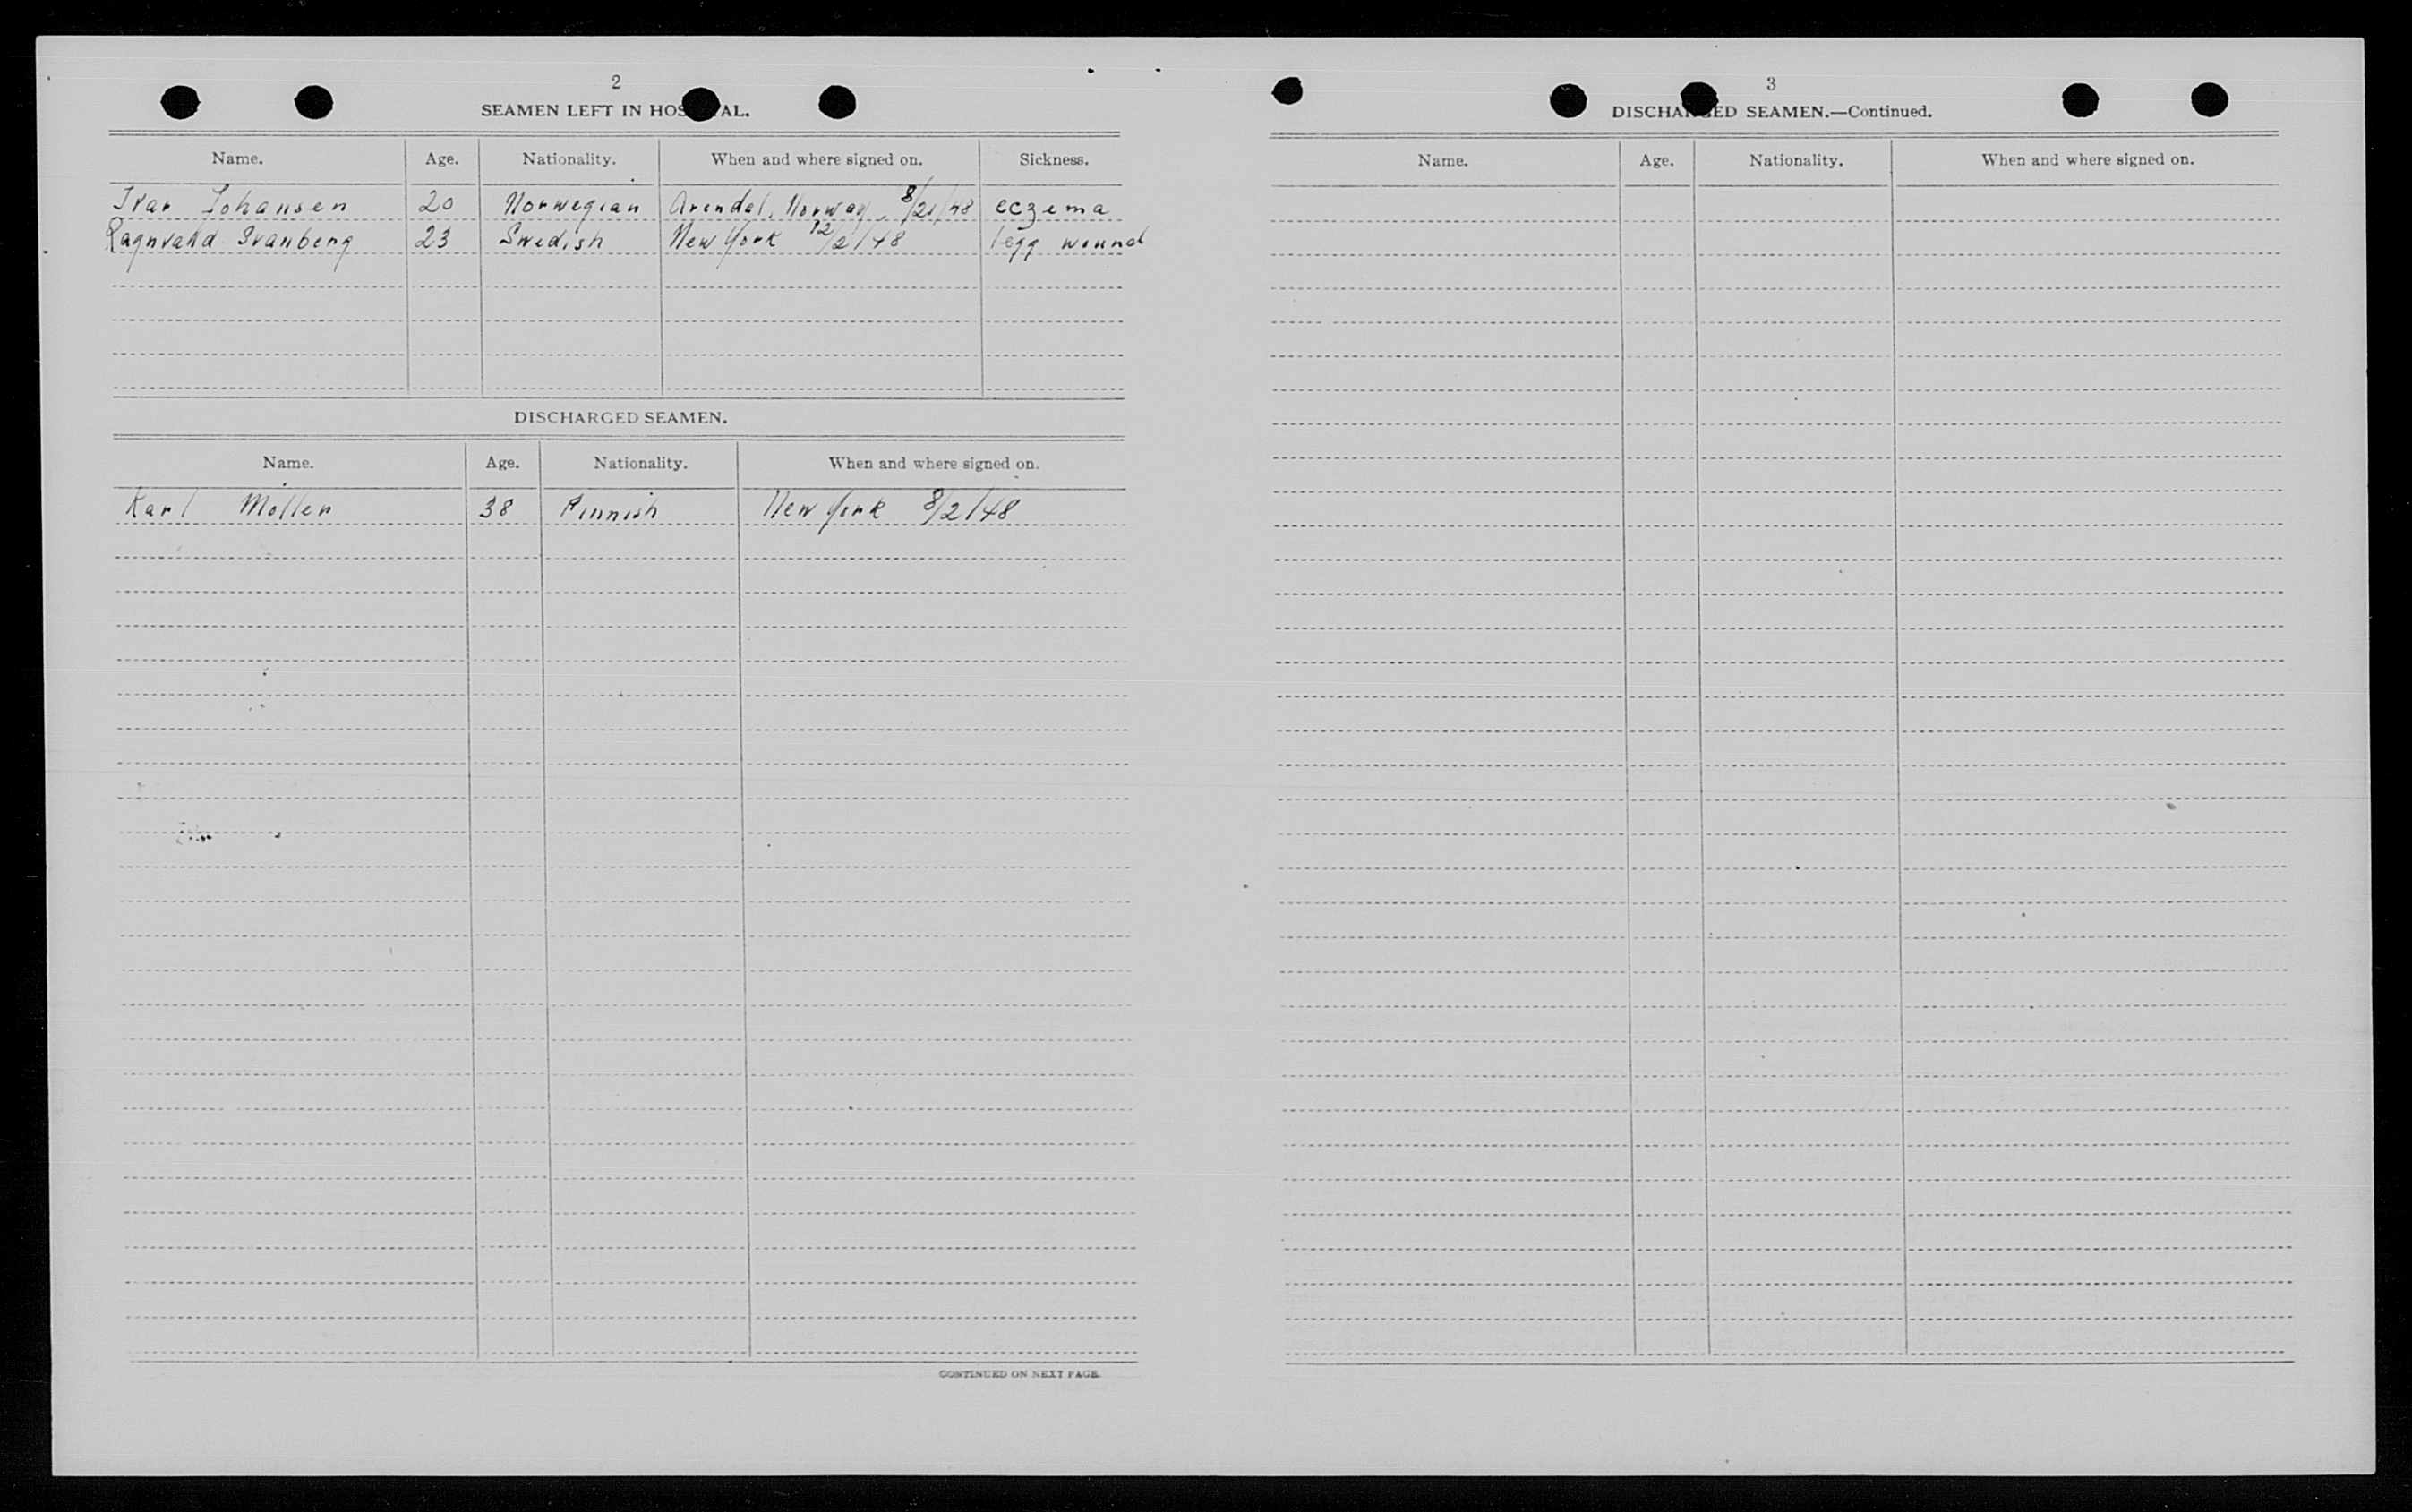 2
SEAMEN LEFT IN HOS AL.
Name. Age. Nationality. When and where signed on. Sickness.
Ivar Johansen 20 Norwegian Arendal, Norway, 8/21/48 eczema
Ragnvald Svanberg 23 Swedish New York 12/2/48 legg wound
DISCHARGED SEAMEN.
Name. Age. Nationality. When and where signed on.
Karl Möller 38 Finnish New York 8/2/48
CONTINUED ON NEXT PAGE.
3
DISCHA ED SEAMEN.—Continued.
Name. Age. Nationality. When and where signed on.